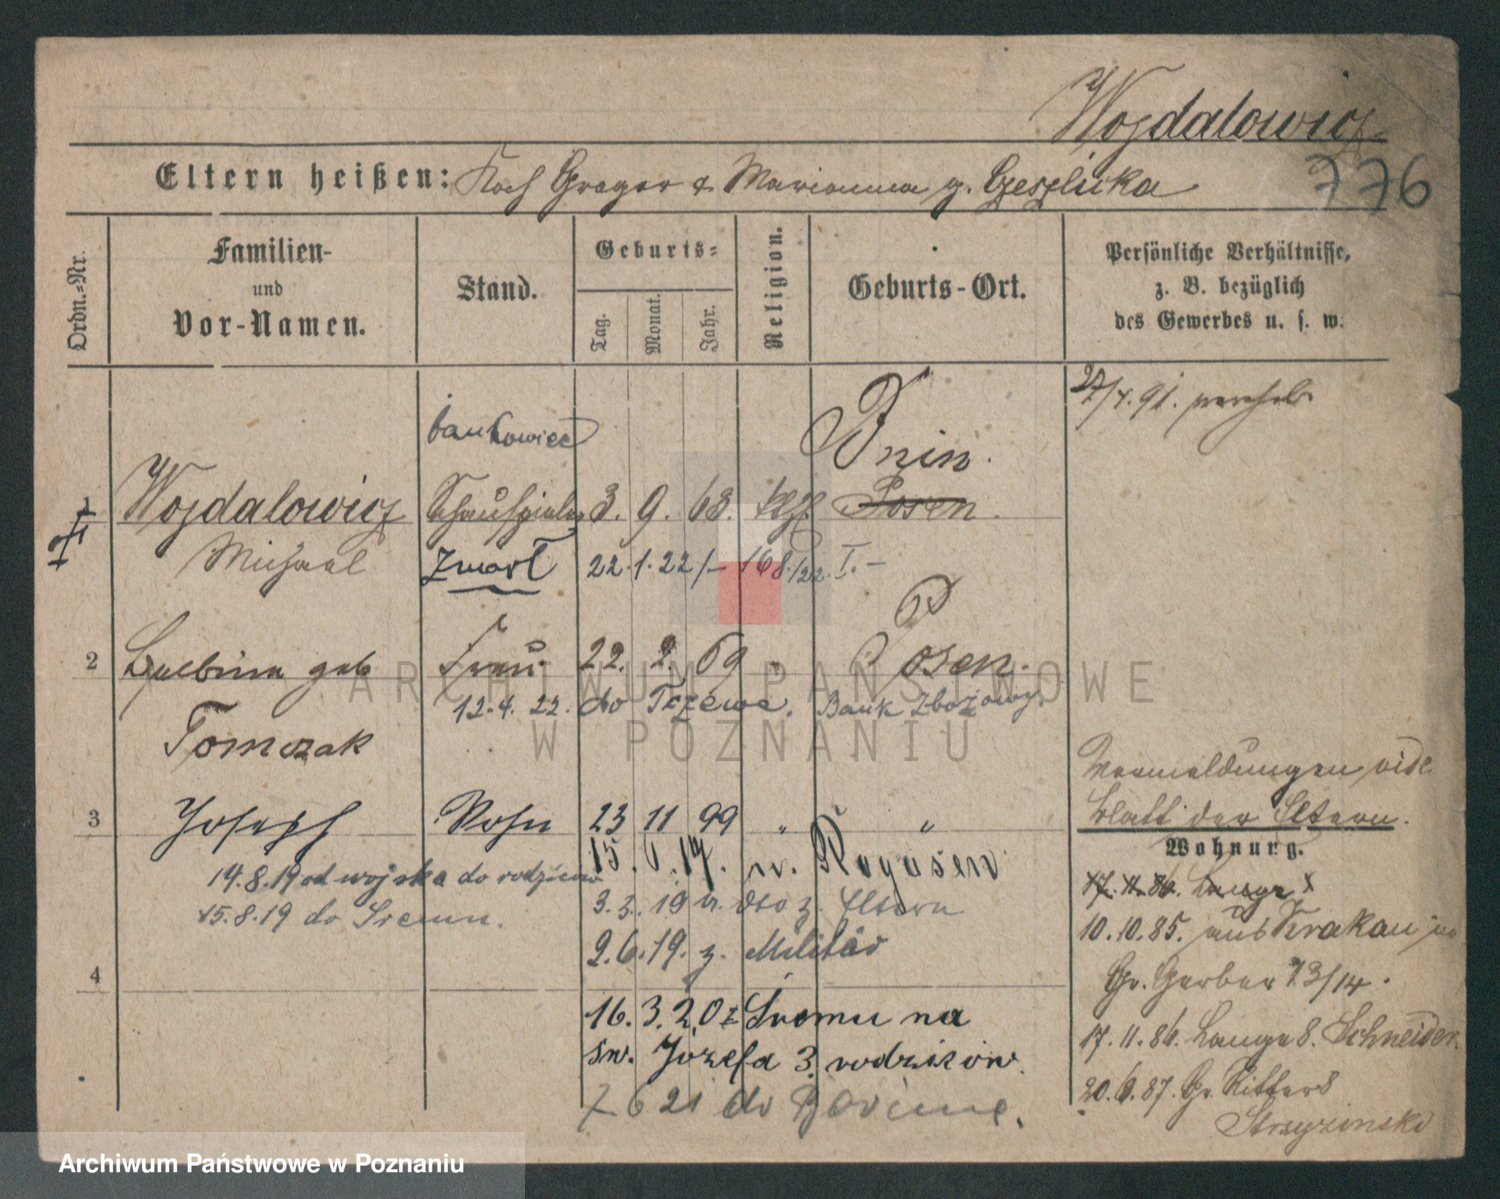 Wojdalowicz
776
Eltern heißen: Koch Gregor & Marianna g. Czeszlicka
Ordn.-Nr.
Familien-
und
Vor-Namen.
Stand.
Geburts-
Tag.
Monat.
Jahr.
Religion.
Geburts-Ort.
Persönliche Verhältnisse,
z. B. bezüglich
des Gewerbes u. s. w.
bankowiec
Bnin.
1 Wojdalowicz Schauspieler 3. 9. 68. Posen.
Michael zmarł 22.1.22 168/22. I. –
2 geb Frau 22. 2. 69 " Posen.
12.4.22. do Tczewa. Bank Zbożowy.
Tomczak
3 Joseph Sohn 23 11 99 " "
15. 6. 17. n. Rogasen
14.8.19 od wojska do rodziców
3.3.19 v. dto z. Eltern
15.8.19 do Śremu.
2.6.19. z. Militär
4
16.3.20 z Śremu na
św. Józefa 3. rodziców.
7 6 21 do
27/4.91.
Vermeldungen vide
Blatt der Eltern.
Wohnung.
17.11.86. Lange
10.10.85. aus Krakau
Gr. Gerber 13/14.
17.11.86. Lange 8. Schneider.
20.6.87. Gr. Ritter 8
ARCHIWUM PAŃSTWOWE
W POZNANIU
Archiwum Państwowe w Poznaniu